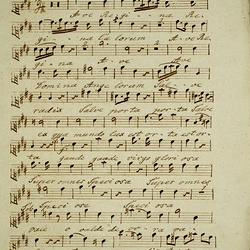 Ave Regi - - na Re
gina Cælorum Ave Re
gina Ave Ave
Domina Angelorum Salve
radix Salve porta porta Salve
ex qua mundo lux est orta est or
ta gaude gaude virgo gloriosa
Super omnes Speciosa Super omnes
Speciosa Speciosa
vale o valde decora